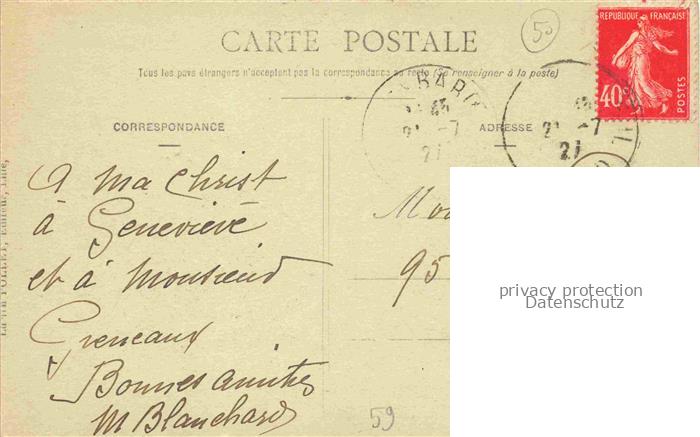 50
CARTE POSTALE
Tous les pays étrangers n'acceptent pas la correspondance au recto (Se renseigner à la poste)
REPUBLIQUE FRANÇAISE
40c
POSTES
CORRESPONDANCE
ADRESSE
21 -7
21
21 -7
21
A ma Christ
à Geneviève
et à Monsieur
Greneaux
Bonnes amitiés
M Blanchard
95
59
privacy protection
Datenschutz